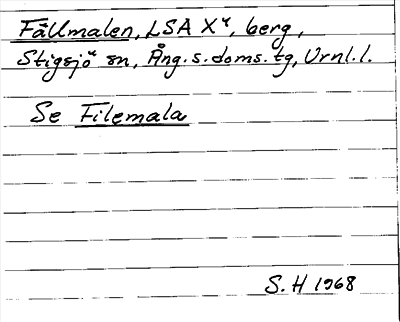 Fällmalen, LSA X4, berg,
Stigsjö sn, Ång. s. doms. tg, Vrnl. l.
Se Filemala
S. H 1968